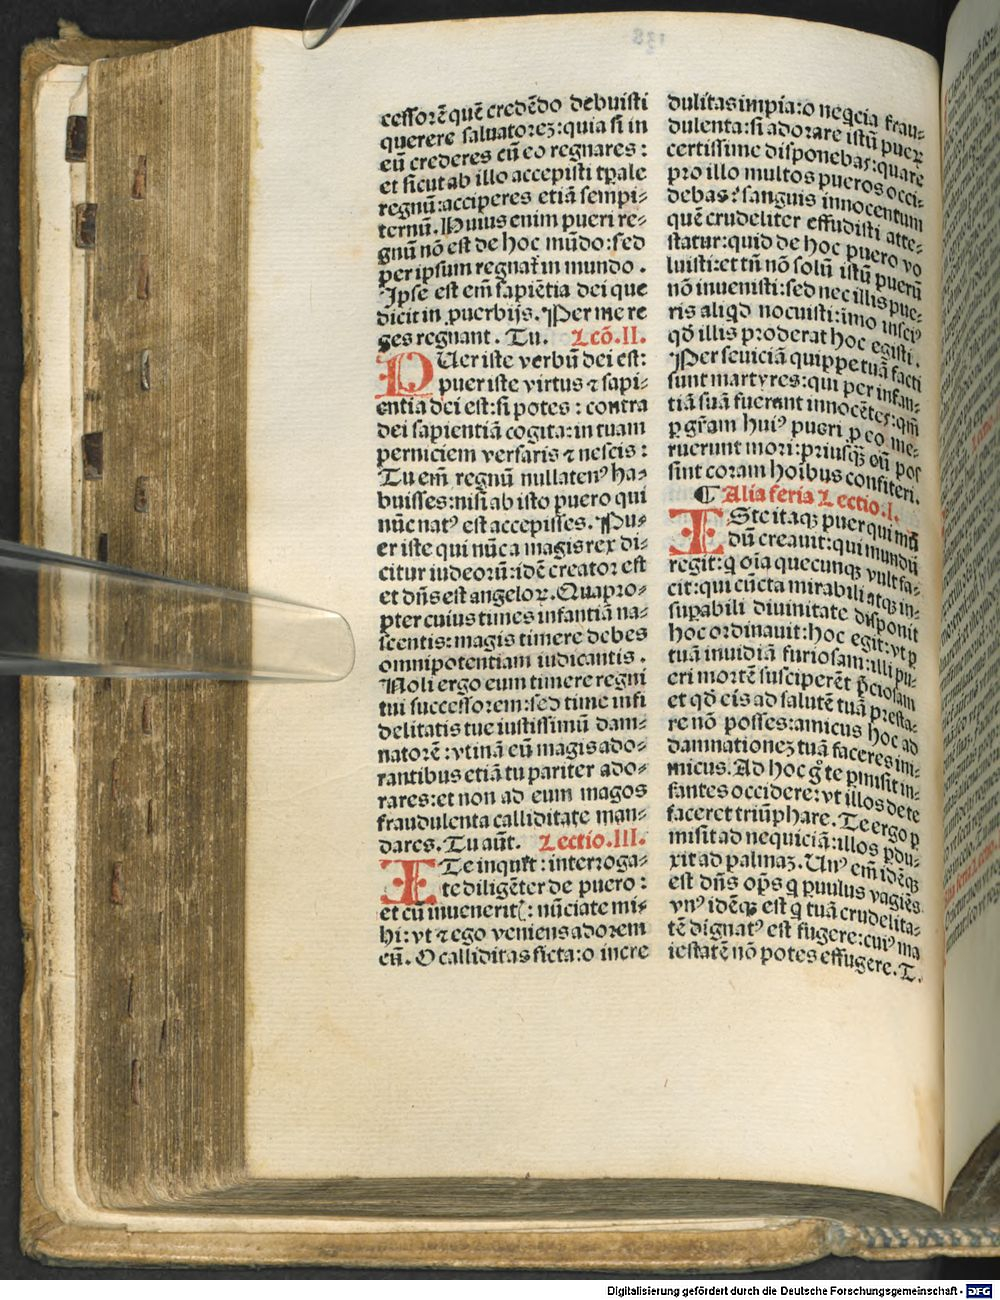 cessorē quē credēdo debuisti
querere saluatorez: quia si in
eū crederes cū eo regnares:
et sicut ab illo accepisti tp̄ale
regnū: acciperes etiā sempi⸗
ternū. Huius enim pueri re⸗
gnū nō est de hoc mūdo: sed
per ipsum regnat̄ in mundo.
Ipse est em̄ sapiētia dei que
dicit in ꝓuerbijs. Per me re
ges regnant. Tu. Lcō. II.
PUer iste verbū dei est:
puer iste virtus ⁊ sapi⸗
entia dei est: si potes: contra
dei sapientiā cogita: in tuam
perniciem versaris ⁊ nescis:
Tu em̄ regnū nullatenꝰ ha⸗
buisses: nisi ab isto puero qui
nūc natꝰ est accepisses. Pu⸗
er iste qui nūc a magis rex di⸗
citur iudeorū: idē creator est
et dn̄s est angeloꝝ. Quapro⸗
pter cuius times infantiā na⸗
scentis: magis timere debes
omnipotentiam iudicantis.
Noli ergo eum timere regni
tui successorem: sed time infi
delitatis tue iustissimū dam⸗
natorē: vtinā eū magis ado⸗
rantibus etiā tu pariter ado⸗
rares: et non ad eum magos
fraudulenta calliditate man⸗
dares. Tu aūt. Lectio. III.
ITe inquit: interroga⸗
te diligēter de puero:
et cū inuenerit(: nūciate mi⸗
hi: vt ⁊ ego veniens adorem
eū. O calliditas ficta: o incre
dulitas impia: o neqcia frau⸗
dulenta: si adorare istū pueꝝ
certissime disponebas: quare
pro illo multos pueros occi⸗
debas? sanguis innocentum
quē crudeliter effudisti atte⸗
statur: quid de hoc puero vo
luisti: et tn̄ nō solū istū puerū
nō inuenisti: sed nec illis pue⸗
ris aliqd nocuisti: imo insciꝰ
qd̄ illis proderat hoc egisti.
Per seuiciā quippe tuā facti
sunt martyres: qui per infan⸗
tiā suā fuerant innocētes: qm̄
ꝑ gr̄am huiꝰ pueri ꝓ eo me⸗
ruerunt mori: priusꝙ̄ eū pos
sint coram hoibus confiteri.
¶ Alia feria Lectio. I.
ISte itaqꝫ puer qui mū
dū creauit: qui mundū
regit: q oīa quecunqꝫ vult fa⸗
cit: qui cūcta mirabili atqꝫ in⸗
suꝑabili diuinitate disponit
hoc ordinauit: hoc egit: vt ꝑ
tuā inuidiā furiosam: illi pu⸗
eri mortē susciperēt p̄ciosam
et qd̄ eis ad salutē tuā presta⸗
re nō posses: amicus hoc ad
damnationez tuā faceres ini⸗
micus. Ad hoc gͦ te ꝑmisit in⸗
fantes occidere: vt illos de te
faceret triūphare. Te ergo ꝑ
misit ad nequiciā: illos ꝑdu⸗
xit ad palmaz. Unꝰ em̄ idēqꝫ
est dn̄s op̄s q ꝑuulus vagiēs
vnꝰ idēqꝫ est q tuā crudelita⸗
tē dignatꝰ est fugere: cuiꝰ ma
iestatē nō potes effugere. T.
Digitalisierung gefördert durch die Deutsche Forschungsgemeinschaft - DFG